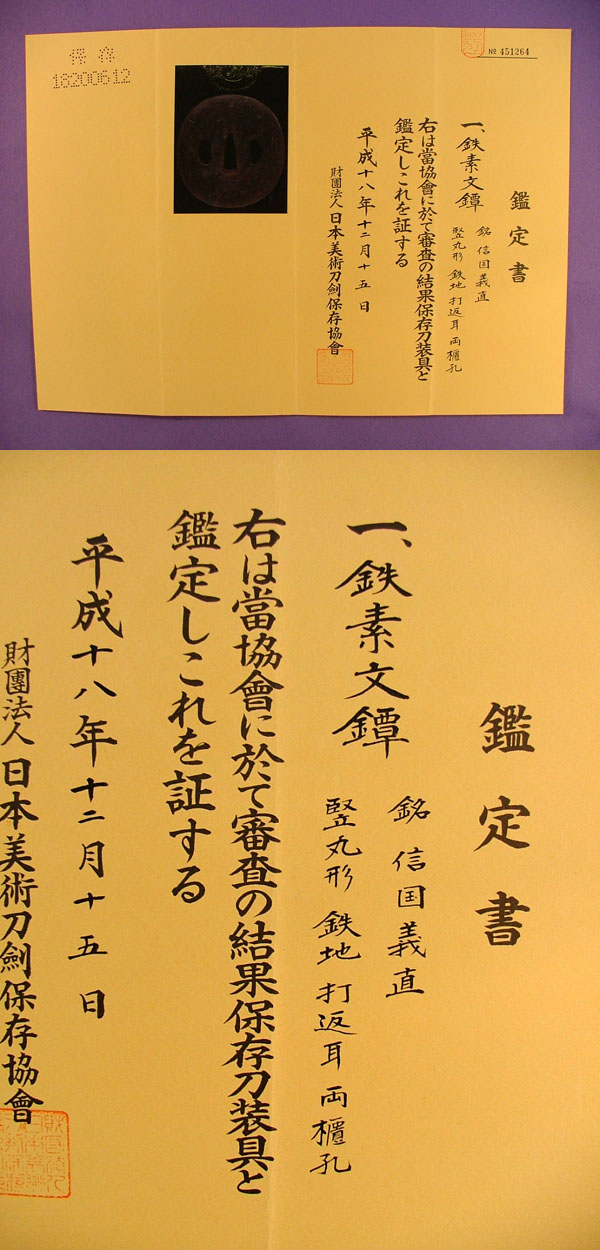 保存
18200612
№ 451264
鑑定書
一、鉄素文鐔
銘 信国義直
竪丸形 鉄地 打返耳 両櫃孔
右は當協會に於て審査の結果保存刀装具と
鑑定しこれを証する
平成十八年十二月十五日
財團法人 日本美術刀劍保存協會
鑑定書
一、鉄素文鐔
銘 信国義直
竪丸形 鉄地 打返耳 両櫃孔
右は當協會に於て審査の結果保存刀装具と
鑑定しこれを証する
平成十八年十二月十五日
財團法人 日本美術刀劍保存協會